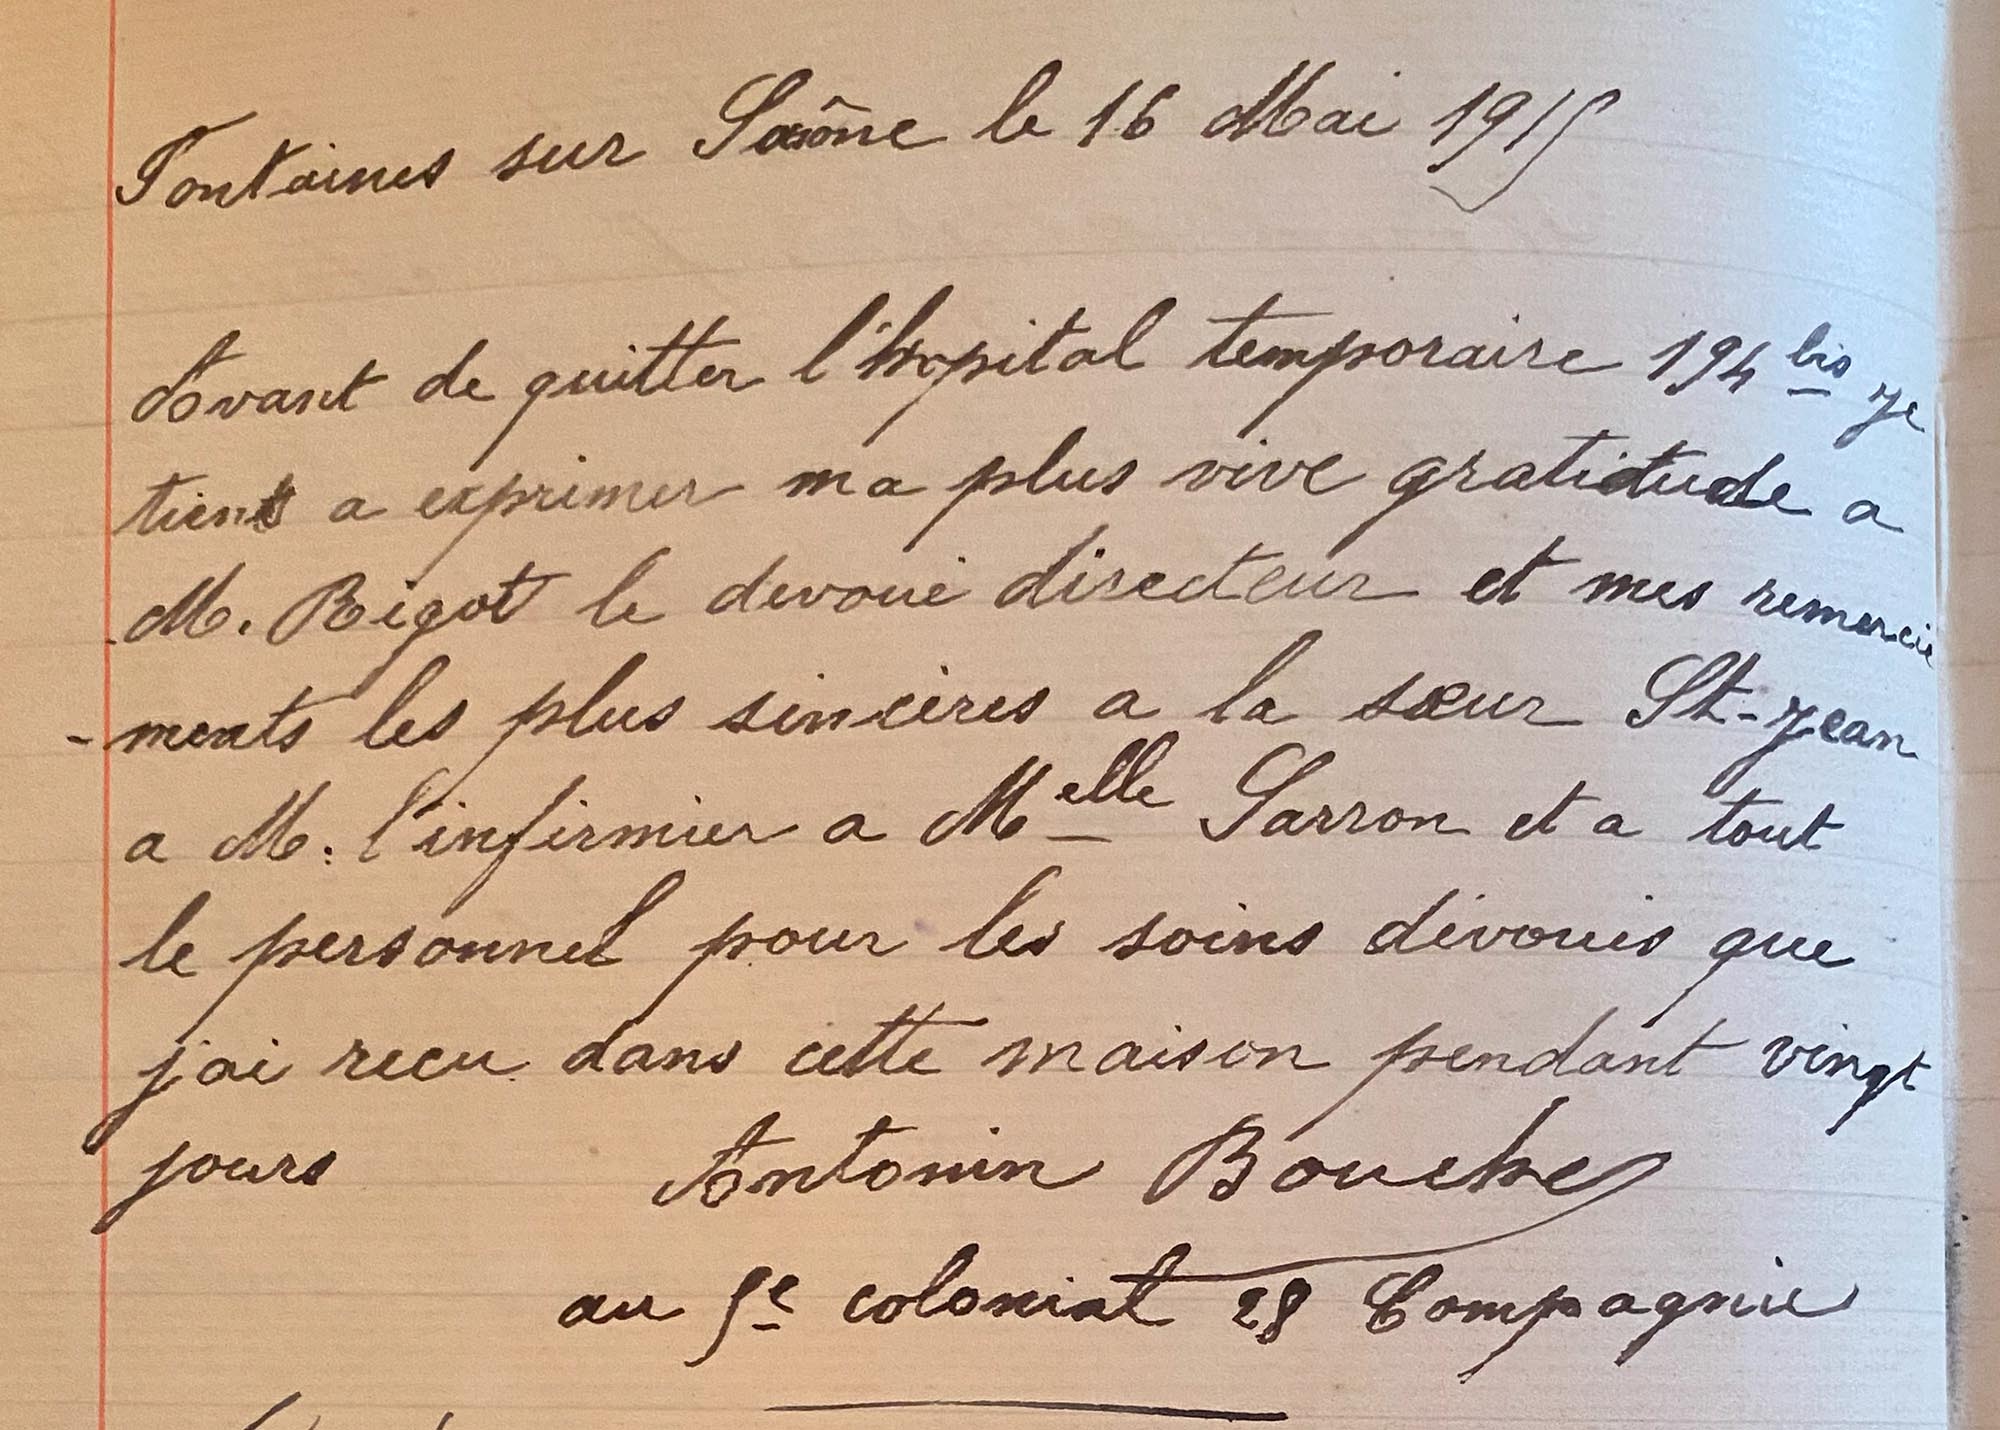 Fontaines sur Saône le 16 Mai 1915
Avant de quitter l'hopital temporaire 194 bis je
tient a exprimer ma plus vive gratidude a
M. Rigot le devoué directeur et mes remercie
-ments les plus sincères a la sœur St-Jean
a M. l'infirmier a Melle Sarron et a tout
le personnel pour les soins dévoués que
j'ai recu dans cette maison pendant vingt
jours Antonin Bouche
au 5e colonial 28 Compagnie